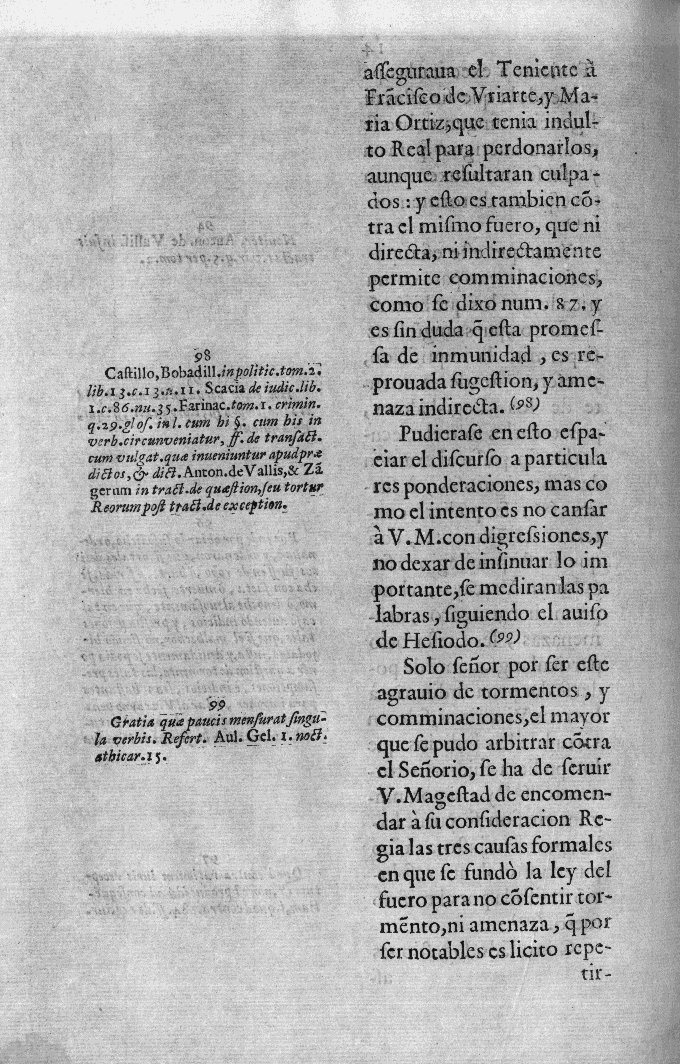 asseguraua el Teniente à
Frãcisco de Vriarte,y Ma-
ria Ortiz,que tenia indul-
to Real para perdonarlos,
aunque resultaran culpa-
dos : y esto es tambien cõ-
tra el mismo fuero, que ni
directa, ni indirectamente
permite comminaciones,
como se dixo num. 87. y
es sin duda q̃ esta promes-
sa de inmunidad , es re-
prouada sugestion, y ame-
naza indirecta. (98)
Pudierase en esto espa-
ciar el discurso a particula
res ponderaciones, mas co
mo el intento es no cansar
à V.M.con digressiones,y
no dexar de insinuar lo im
portante,se mediran las pa
labras , siguiendo el auiso
de Hesiodo. (99)
Solo señor por ser este
agrauio de tormentos , y
comminaciones,el mayor
que se pudo arbitrar cõtra
el Señorio, se ha de seruir
V.Magestad de encomen-
dar à su consideracion Re-
gia las tres causas formales
en que se fundò la ley del
fuero para no cõsentir tor-
mẽto,ni amenaza , q̃ por
ser notables es licito repe-
tir-
98
Castillo, Bobadill.in politic.tom.2.
lib.13.c.13.n.11. Scacia de iudic.lib.
1.c.86.nu.35.Farinac.tom.1. crimin.
q.29.glos. in l. cum hi §. cum his in
verb.circunveniatur, ff. de transact.
cum vulgat.quæ inueniuntur apud præ
dictos, & dict. Anton.de Vallis,& Zã
gerum in tract.de quæstion,seu tortur
Reorum post tract.de exception.
99
Gratia quæ paucis mensurat singu-
la verbis. Refert. Aul. Gel. 1. noct.
athicar.15.